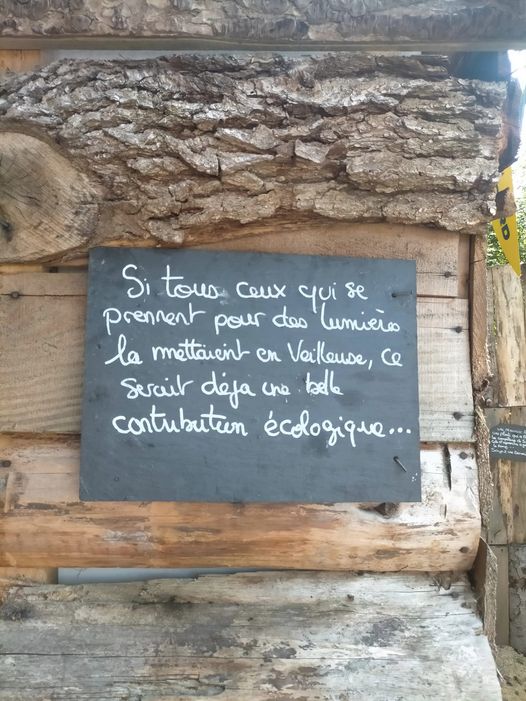 Si tous ceux qui se
prennent pour des lumières
la mettaient en Veilleuse, ce
serait déja une belle
contribution écologique...